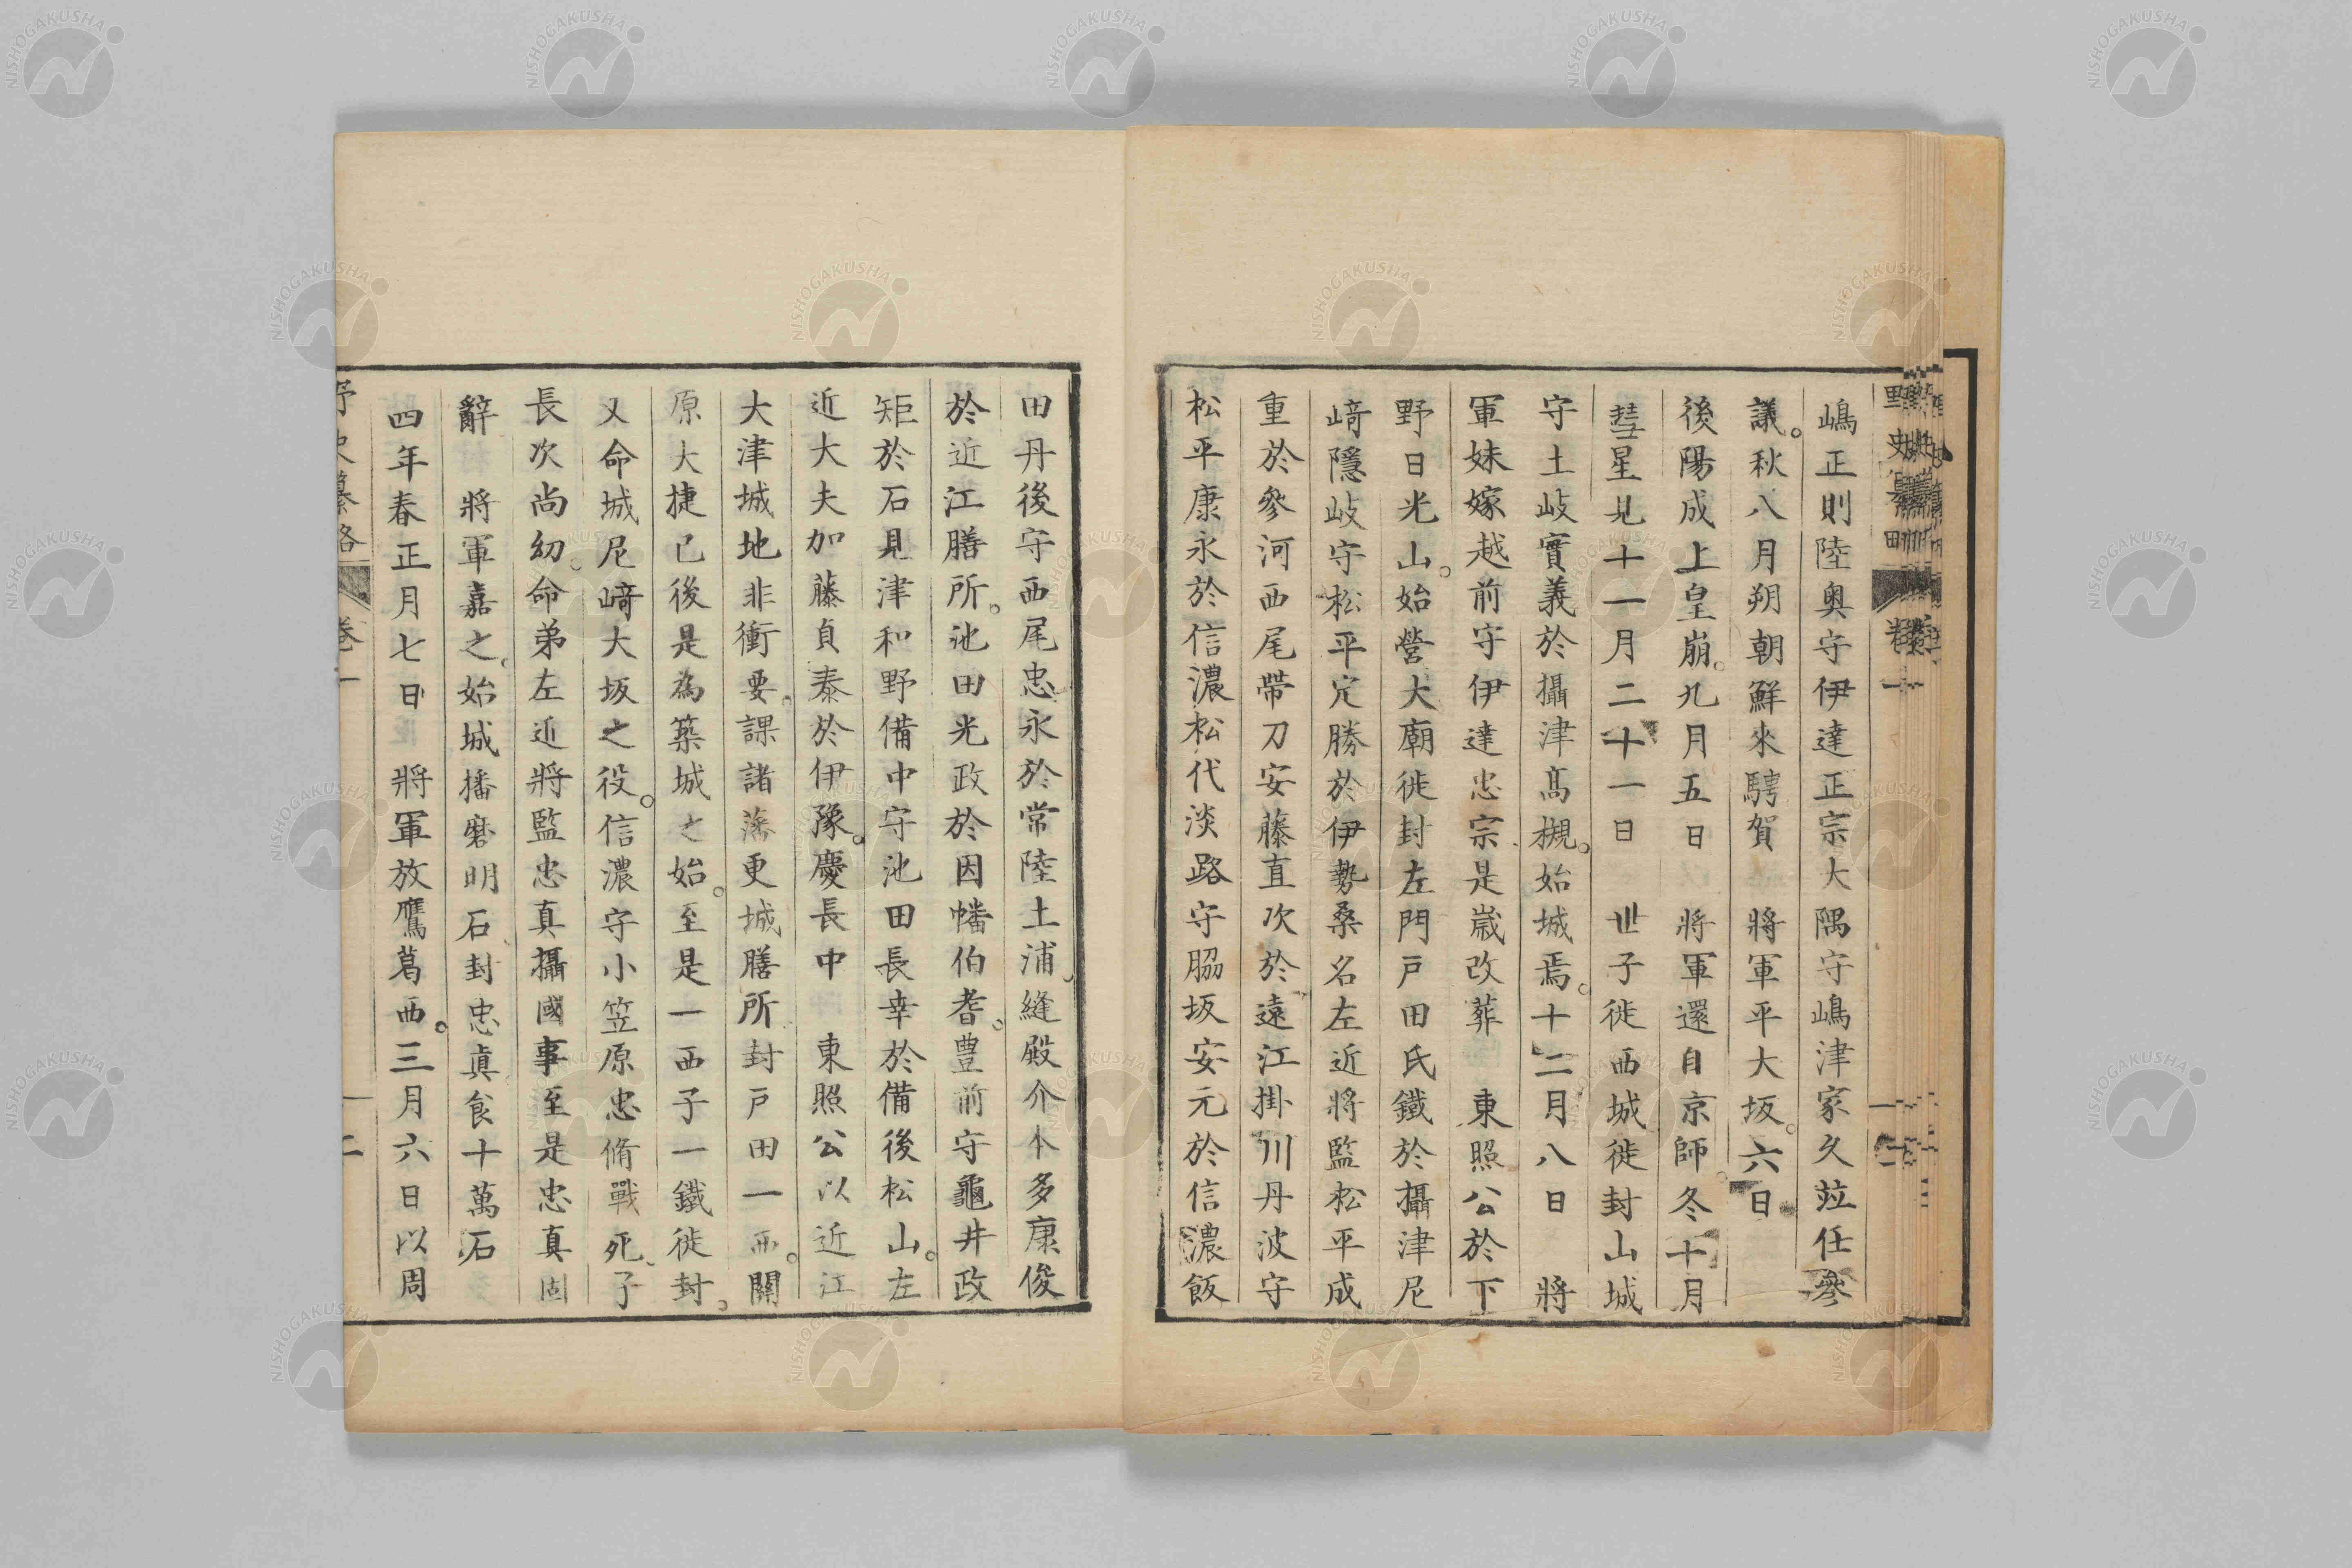 嶋正則陸奥守伊達正宗大隅守嶋津家久竝任參
議。秋八月朔朝鮮來騁賀　將軍平大坂。六日
後陽成上皇崩。九月五日　將軍還自京師。冬十月
彗星見十一月二十一日　世子徙西城徙封山城
守土岐實義於攝津髙槻。始城焉。十二月八日　將
軍妹嫁越前守伊達忠宗。是歳改葬　東照公於下
野日光山。始營大廟徙封左門戸田氏鐵於攝津尼
﨑隱岐守松平定勝於伊勢桑名左近將監松平成
重於參河西尾帶刀安藤直次於遠江掛川丹波守
松平康永於信濃松代淡路守脇坂安元於信濃飯
田丹後守西尾忠永於常陸土浦。縫殿介本多康俊
於近江膳所。池田光政於因幡伯耆。豊前守龜井政
矩於石見津和野備中守池田長幸於備後松山。左
近大夫加藤貞泰於伊豫。慶長中　東照公以近江
大津城地非衝要。課諸藩更城膳所封戸田一西。關
原大捷已後是為築城之始。至是一西子一鐵徙封。
又命城尼﨑大坂之役。信濃守小笠原忠脩戰死。子
長次尚幼。命弟左近將監忠真攝國事至是忠真固
辭　將軍嘉之。始城播磨明石封忠眞食十萬石
四年春正月七日　將軍放鷹葛西。三月六日以周
野史纂畧　卷一　十二